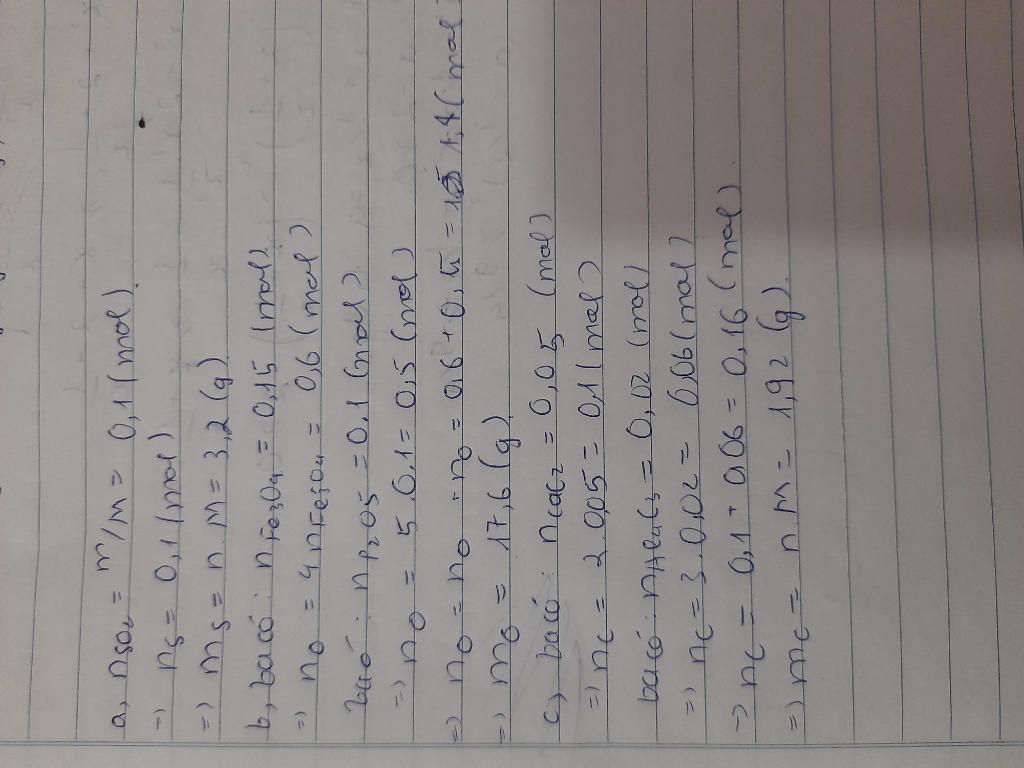 a, nSO₂ = m/M = 0,1 (mol).
=> nS = 0,1 (mol)
=> mS = n.M = 3,2 (g)
b, ta có : nFe₃O₄ = 0,15 (mol)
=> nO = 4nFe₃O₄ = 0,6 (mol)
ta có : nP₂O₅ = 0,1 (mol)
=> nO = 5.0,1 = 0,5 (mol)
=> nO = nO + nO = 0,6 + 0,5 = 1,1 (mol)
=> mO = 17,6 (g)
c, ta có : nCaC₂ = 0,05 (mol)
=> nC = 2.0,05 = 0,1 (mol)
=> nC = 3.0,02 = 0,06 (mol)
-> nC = 0,1 + 0,06 = 0,16 (mol).
=> mC = n.M = 1,92 (g).